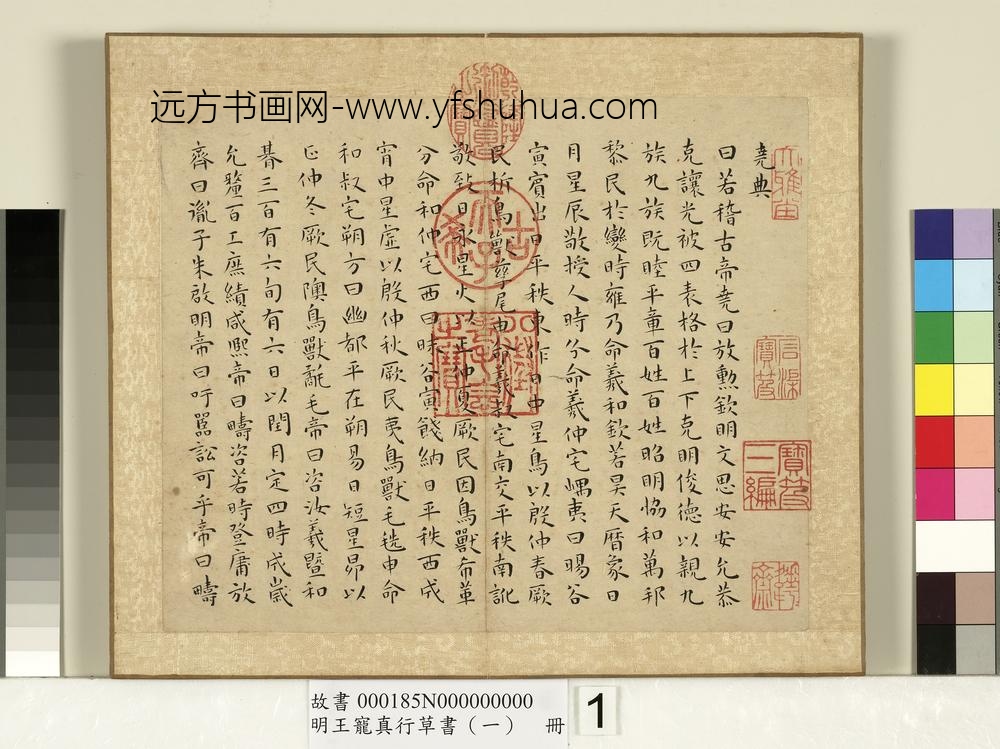 远方书画网-www.yfshuhua.com
堯典
曰若稽古帝堯曰放勳欽明文思安安允恭
克讓光被四表格於上下克明俊德以親九
族九族既睦平章百姓百姓昭明協和萬邦
黎民於變時雍乃命羲和欽若昊天曆象日
月星辰敬授人時分命羲仲宅嵎夷曰暘谷
寅賓出日平秩東作日中星鳥以殷仲春厥
民析鳥獸孳尾申命羲叔宅南交平秩南訛
敬致日永星火以正仲夏厥民因鳥獸希革
分命和仲宅西曰昧谷寅餞納日平秩西成
宵中星虛以殷仲秋厥民夷鳥獸毛毨申命
和叔宅朔方曰幽都平在朔易日短星昴以
正仲冬厥民隩鳥獸氄毛帝曰咨汝羲暨和
朞三百有六旬有六日以閏月定四時成歲
允釐百工庶績咸熙帝曰疇咨若時登庸放
齊曰胤子朱啟明帝曰吁嚚訟可乎帝曰疇
乾隆御覽之寶
古希天子
八徵耄念之寶
石渠寶笈
寶笈三編
故書 000185N000000000
明王寵真行草書（一） 冊
1